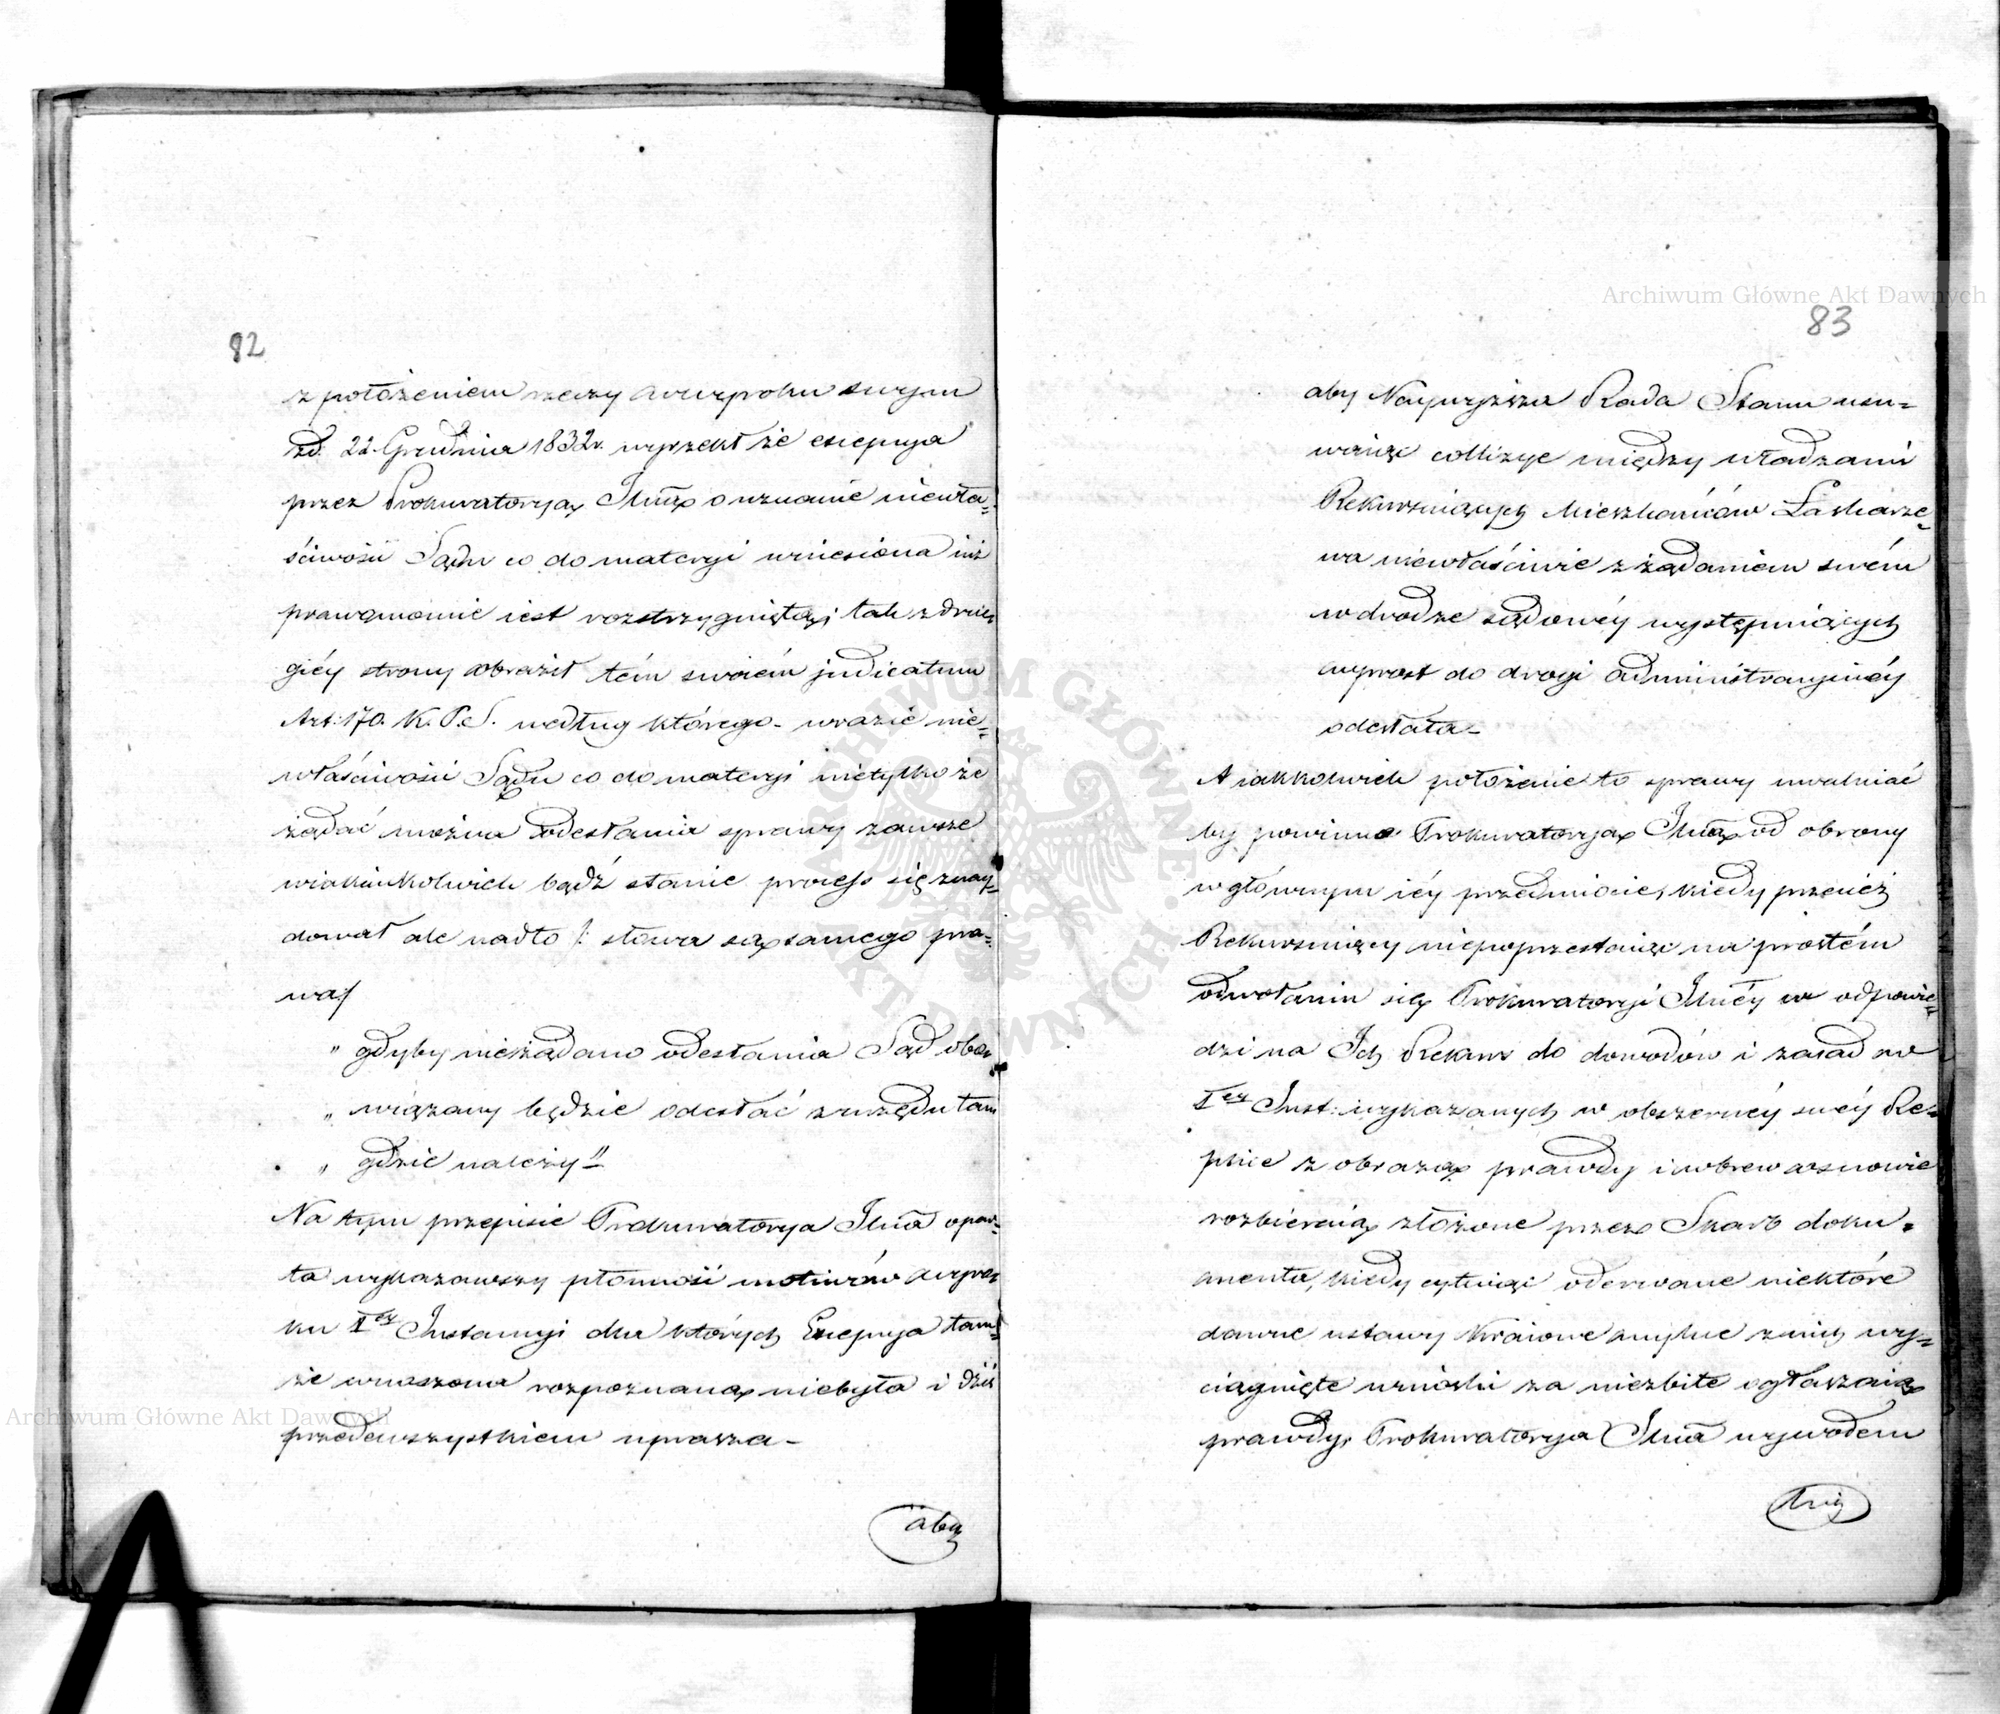 82
z położeniem rzeczy w wyroku swym
zd. 22. Grudnia 1832r. wyrzekł że excepcya
przez Prokuratoryą Jlną o uznanie niewła-
ściwości Sądu co do materyi wniesiona iuż
prawomocnie iest rozstrzygniętą; tak z dru-
giéy strony obraził tém swoiém judicatum
Art: 170. K. P. S. według którego - w razie nie-
właściwości Sądu co do materyi nietylko że
żądać można odesłania sprawy zawsze
w iakimkolwiek bądź stanie process się znay-
dował ale nadto /: słowa są samego pra-
wa:/
" gdyby nieżądano odesłania Sąd obo-
" wiązany będzie odesłać z urzędu tam
" gdzie należy"
Na tym przepisie Prokuratorya Jlna opar-
ta wykazawszy płonność motiwów wyro-
ku Iey Instancyi dla których Excepcya tam-
że wnoszona rozpoznaną niebyła i dziś
przedewszystkiem uprasza -
aby
Archiwum Główne Akt Dawnych
83
aby Naywyższa Rada Stanu usu-
waiąc collizye między władzami
Rekursuiących Mieszkańców Łaskarze-
wa niewłaściwie z żądaniem swém
w drodze sądowéy występuiących
wprost do drogi administracyinéy
odesłała -
A iakkolwiek położenie to sprawy uwalniać
by powinno Prokuratoryą Jlną od obrony
w głównym iéy przedmiocie, kiedy przecież
Rekursuiący niepoprzestaiąc na prostém
odwołaniu się Prokuratoryi Jlnéy w odpowie-
dzi na Ich Rekurs do dowodów i zasad w
Iey Inst: wykazanych w obszernéy swéy Re-
plice z obrazą prawdy i wbrew osnowie
rozbieraią złożone przez Skarb doku-
menta, kiedy cytuiąc oderwane niektóre
dawne ustawy Kraiowe mylne z nich wy-
ciągnięte wnioski za niezbite ogłaszaią
prawdy, Prokuratorya Jlna wywodem
Archiwum Główne Akt Dawnych
ARCHIWUM GŁÓWNE AKT DAWNYCH